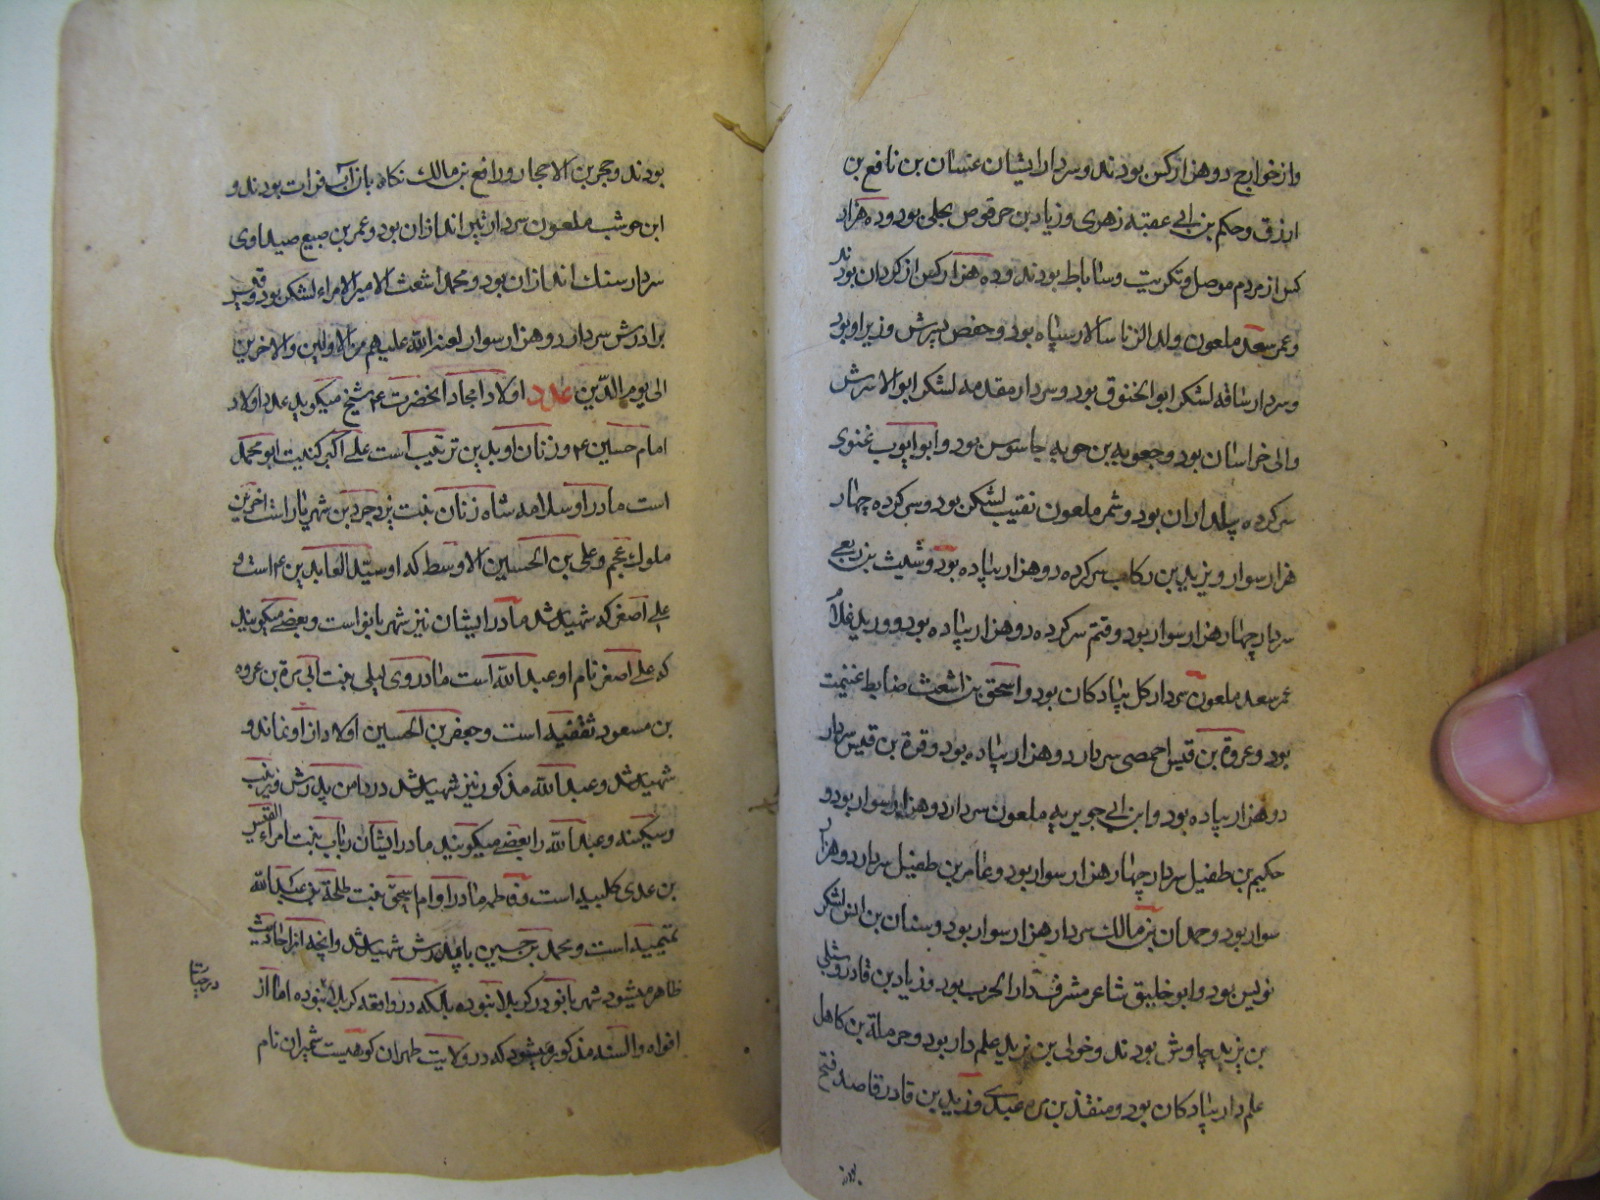 واز خوارج دو هزار کس بودند و سردار ایشان غسان بن نافع بن
ازرق و حکم بن ابی عقبه زهری و زیاد بن حرقوص بجلی بود و ده هزار
کس از مردم موصل و تکریت و ساباط بودند و ده هزار کس از کردان بودند
و عمر سعد ملعون ولد الزنا سالار سپاه بود و حفص پسرش وزیر او بود
و سردار ساقه لشکر ابو الخنوق بود و سردار مقدمه لشکر ابو الاسرش
والی خراسان بود و جعویه بن حویه جاسوس بود و ابو ایوب غنوی
سرکرده بیلداران بود و شمر ملعون نقیب لشکر بود و سرکرده چهار
هزار سوار و یزید بن رکاب سرکرده دو هزار پیاده بود و شیث بن ربعی
سردار چهار هزار سوار بود و قثم سرکرده دو هزار پیاده بود و ورید غلام
عمر سعد ملعون سردار کل پیادکان بود و اسحق بن اشعث ضابط غنیمت
بود و عروة بن قیس احمصی سردار دو هزار پیاده بود و قرة بن قیس سردار
دو هزار پیاده بود و ابن ابی جویریه ملعون سردار دو هزار سوار بود و
حکیم بن طفیل سردار چهار هزار سوار بود و عامر بن طفیل سردار دو هزار
سوار بود و حمدان بن مالک سردار هزار سوار بود و سنان بن انس لشکر
نویس بود و ابو خلیق شاعر مشرف دار الحرب بود و زیاد بن قادر و شبلی
بن یزید چاوش بودند و خولی بن یزید علم دار بود و حرملة بن کاهل
علم دار پیادکان بود و منقذ بن مره عبدی و زید بن قادر قاصد فتح
بودند و حجر بن الاحجار و رافع بن مالک نکاه بان آب فرات بودند و
ابن حوشب ملعون سردار تیر اندازان بود و عمر بن صبیع صیداوی
سردار سنک اندازان بود و محمد اشعث الامیر الامراء لشکر بود و قیس
برادرش سردار دو هزار سوار لعنة الله علیهم من الاولین والاخرین
الی یوم الدین عدد اولاد امجاد انحضرت ع شیخ میکوید عدد اولاد
امام حسین ع و زنان او بدین ترتیب است علی اکبر کنیت ابو محمد
است مادر او سلامه شاه زنان بنت یزدجرد بن شهریار است اخرین
ملوک عجم و علی بن الحسین الاوسط که او سید العابدین ع است و
علی اصغر که شهید شد مادر ایشان نیز شهر بانو است و بعضی میکویند
که علی اصغر نام او عبد الله است مادر وی لیلی بنت ابی مرة بن عروه
بن مسعود ثقفیه است و جعفر بن الحسین اولاد از او نماند و
شهید شد و عبد الله مذکور نیز شهید شد در دامن پدرش و زینب
و سکینه و عبد الله را بعضی میکویند مادر ایشان رباب بنت امراء القیس
بن عدی کلبیه است و فاطمه مادر او ام اسحق بنت طلحة بن عبد الله
تمیمیه است و محمد بن حسین با پدرش شهید شد و انچه از احادیث
ظاهر میشود شهر بانو در کربلا نبوده بالکه در واقعه کربلا نبوده اما از
افواه و السنه مذکور میشود که در ولایت طهران کوهیست شمیران نام